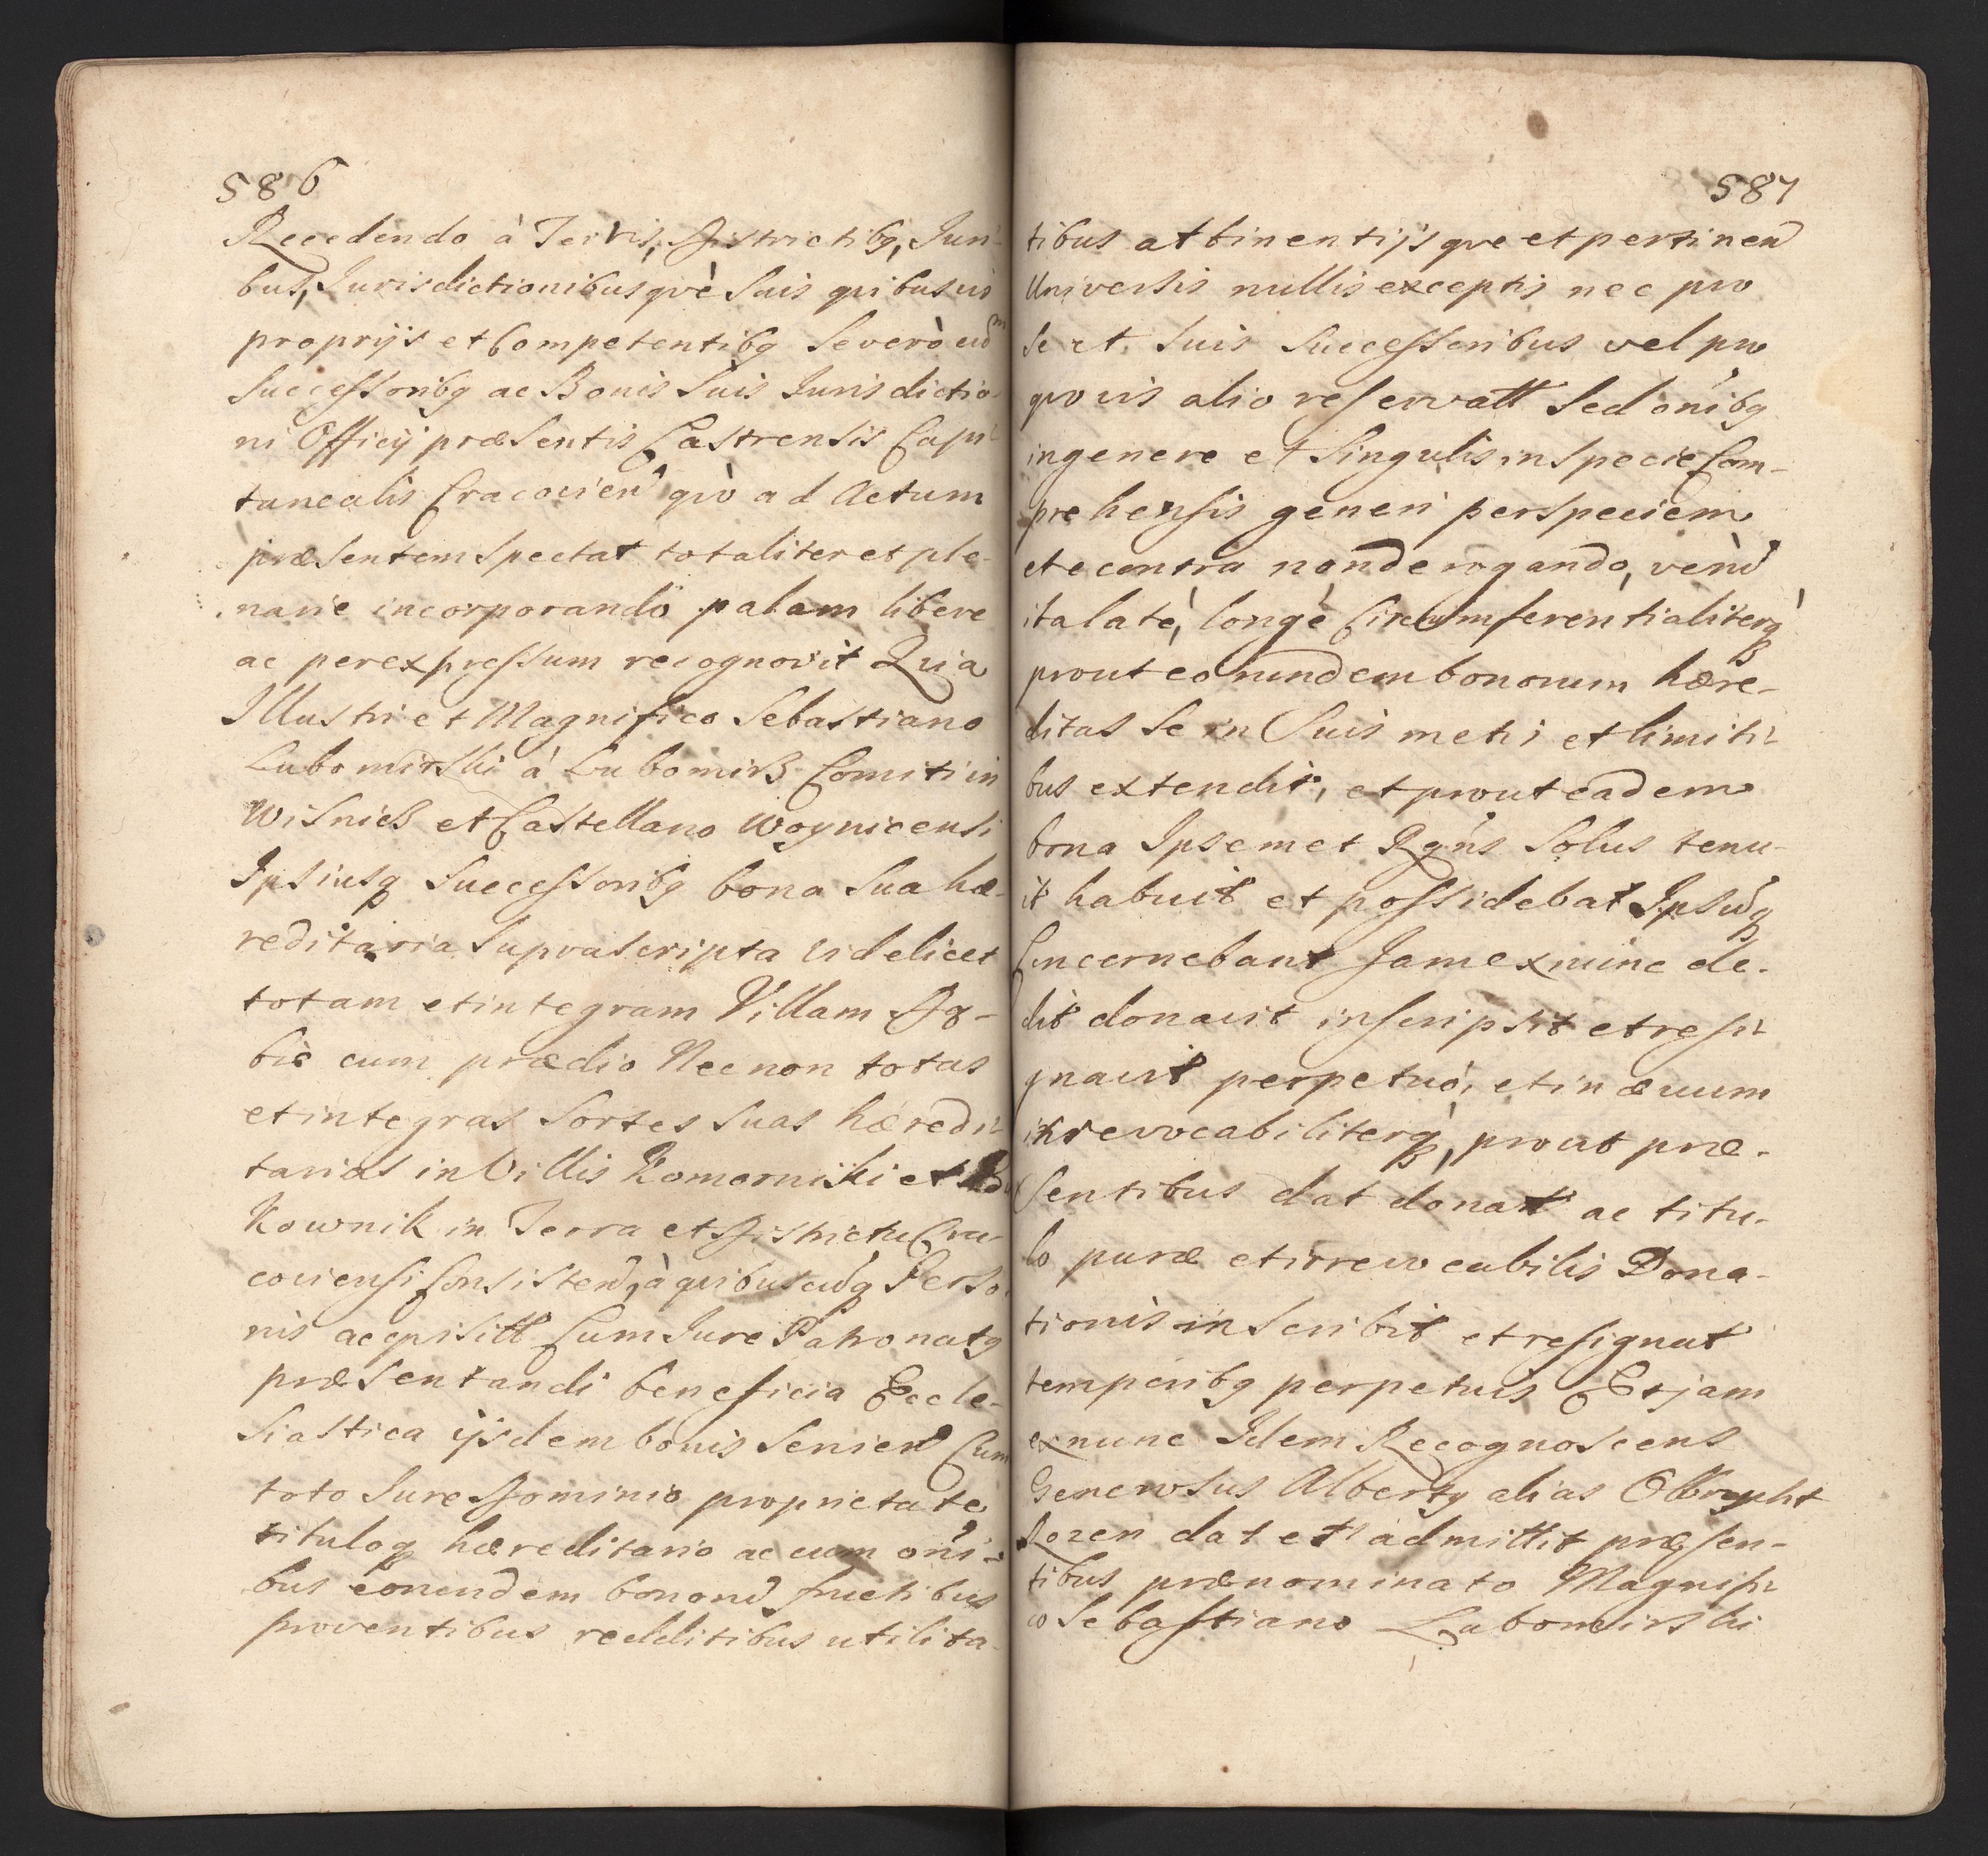 586
Recedendo à Terris, Districtibq, Juri-
bus, Jurisdictionibusqvè Suis qvibusvis
proprijs et Competentibq Severò cum
Successoribq ac Bonis Suis Jurisdictio-
ni Officij præsentis Castrensis Capi-
tanealis Cracovien qvò ad Actum
præsentem spectat totaliter et ple-
narie incorporando palam libere
ac per expressum recognovit Qvia
Illustri et Magnifico Sebastiano
Lubomirski à Lubomirz Comiti in
Wisnicz et Castellano Woynicensi
Ipsiusq Successoribq bona Sua hæ-
reditaria Suprascripta videlicet
totam et integram Villam Dą-
bie cum prædio Necnon totas
et integras Sortes Suas hæredi-
tarias in Villis Komorniki et
Kownik in Terra et Districtu Cra-
coviensi Consisten à qvibuscunq Perso-
nis acqvisitt Cum Jure Patronatq
præsentandi beneficia Eccle-
siastica ijsdem bonis Servien Cum
toto Jure Dominio proprietate
tituloq hæreditario ac cum oni-
bus eorundem bonorum fructibus
proventibus redditibus utilita-
587
tibus attinentijsqve et pertinen
Universis nullis exceptis nec pro
Se et Suis Successoribus vel pro
qvovis alio reservatt Sed onibq
in genere et Singulis in Specie Com-
prehensis generi per speciem
et e contra non derogando, verum
ita latè, longè Circumferentialiterq
prout eorundem bonorum hære-
ditas Se in Suis metis et limiti-
bus extendit, et prout eadem
bona Ipsemet Rgns Solus tenu-
it habuit et possidebat Ipsumq
Concernebant Jam ex nunc de-
dit donavit inscripsit et resi-
gnavit perpetuò, et in ævum
irrevocabiliterq, prout præ-
sentibus dat donat ac titu-
lo puræ et irrevocabilis Dona-
tionis inscribit et resignat
temporibq perpetuis Et jam
ex nunc Idem Recognoscens
Generosus Albertq alias Olbrycht
Rozen dat et admittit præsen-
tibus prænominato Magnifi-
co Sebastiano Lubomirski